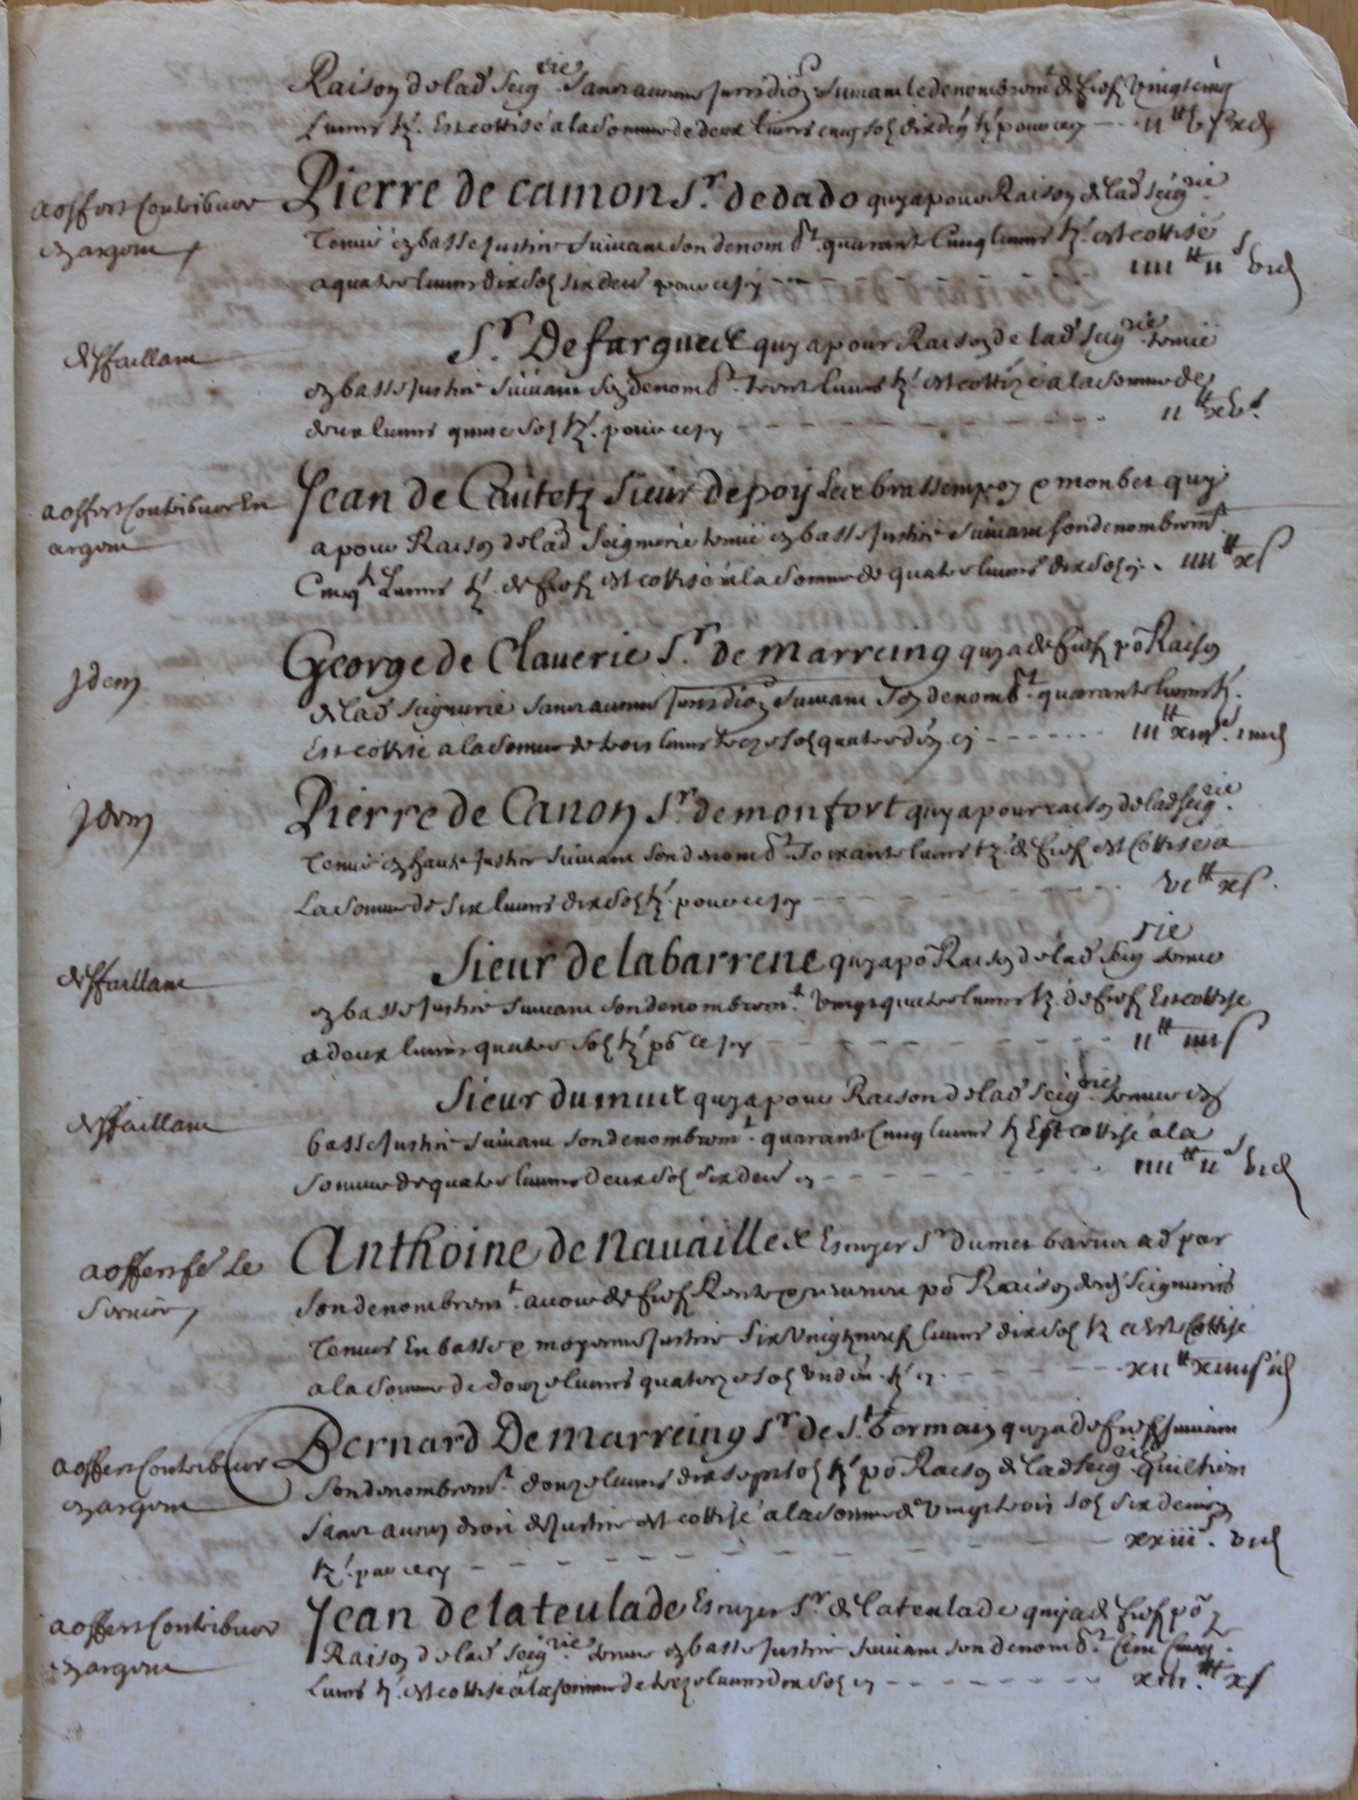 Raison de lad. Seigrie Sans aucune Jurisdion Suivant le denombremt de fief vingt cinq
Livres tz. Est cottisé a la Somme de deux livres cinq sols dix den. tz pour cecy --- ii tt v s x d
a offert Contribuer
en argent
Pierre de camon Sr. de dado quy a pour Raison de lad. Seigrie
Tenue en basse Justice Suivant son denombt. quarante Cinq livres tz. est cottisé
a quatre livres dix sols six den. pour cecy --- iiii tt ii s vi d
deffaillant
Sr. De fargueix quy a pour Raison de lad. Seigrie. tenue
en basse Justice Suivant son denombt. trente livres tz. est cottizé a la Somme de
deux livres quinze Sols tz. pour cecy --- ii tt xv s.
a offert Contribuer En
argent
Jean de Cautetz Sieur de poij brassempoy e monbet quy
a pour Raison de lad Seigneurie tenue en basse Justice Suivant son denombremt.
Cinqte Livres tz. de fief est cottisé a la Somme de quatre livres dix sols cy. iiii tt x s
Jdem
George de Clauerie Sr. de marreing quy a de fief po Raison
de lad. Seigneurie Sans aucune Jurisdion Suivant Son denombt. quarante livres tz.
Est cottisé a la Somme de trois livres treze sols quatre den. cy --- iii tt xiii s. iiii d
Jdem
Pierre de Canon Sr. de monfort quy a pour raison de lad Seigrie.
Tenue en haute Justice Suivant Son denombt. Soixante livres tz. de fief est Cottisé a
La Somme de Six livres dix Sols tz. pour cecy --- vi tt x s.
deffaillant
Sieur de labarrene quy a po Raison de lad. Seigrie tenue
en basse Justice Suivant son denombremt. vingt quatre livres tz. de fief Est cottisé
a deux livres quatre Sols tz. po cecy --- ii tt iiii s
deffaillant
Sieur du muix quy a pour Raison de lad. Seigrie. tenue en
basse Justice Suivant son denombremt. quarante Cinq livres tz Est cottisé a la
Somme de quatre livres deux Sols six den. cy --- iiii tt ii s vi d
a offert fe Le
Seruice
Anthoine de nauailles Escuyer Sr du met ad. par
Son denombremt. avoir de fief Rente po Raison desd Seigneuries
Tenues En basse e moyenne Justice Six vingtz neuf livres dix Sols tz est Cottisé
a la Somme de douze livres quatorze Sols un den. tz. cy --- xii tt xiiii s i d
a offert Contribuer
en argent
Bernard De marreing Sr de St. bormain quy a de fief Suivant
Son denombremt. douze livres dix sept Sols tz po Raison de lad Seigrie
Sans aucun droit de Justice est cottisé a la Somme de vingt trois Sols six deniers
tz. pour cecy --- xxiii s. vi d
a offert Contribuer
en argent
Jean de lateulade Escuyer Sr. de lateulade quy a de fief po
Raison de lad. Seigrie. tenue en basse Justice Suivant Son denombt. Cent Cinqte.
Livres tz. est cottisé a la Somme de treze livres dix Sols cy --- xiii. tt x s